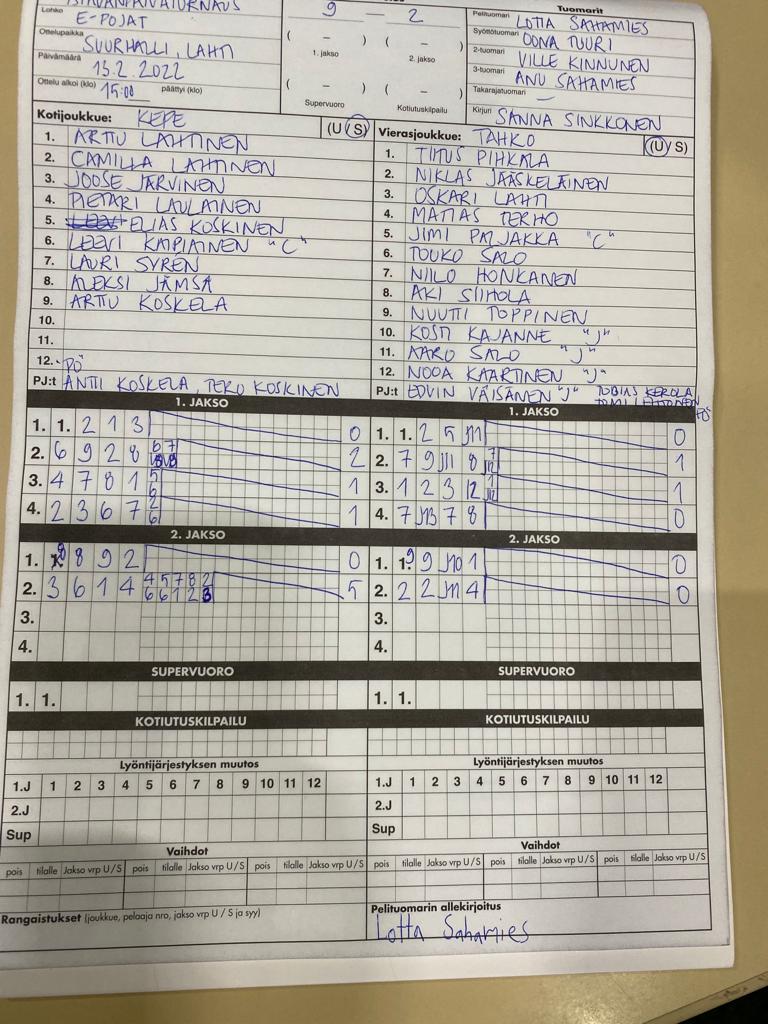 E-POJAT
Lohko
Ottelupaikka
SUURHALLI, LAHTI
Päivämäärä
13.2.2022
Ottelu alkoi (klo) 15:00 päättyi (klo)
9 – 2
( – ) ( – )
1. jakso 2. jakso
( – ) ( – )
Supervuoro Kotiutuskilpailu
Tuomarit
Pelituomari LOTTA SAHAMIES
Syöttötuomari OONA TUURI
2-tuomari VILLE KINNUNEN
3-tuomari ANU SAHAMIES
Takarajatuomari –
Kirjuri SANNA SINKKONEN
Kotijoukkue: KEPE (U/S)
1. ARTTU LAHTINEN
2. CAMILLA LAHTINEN
3. JOOSE JÄRVINEN
4. PIETARI LAULAINEN
5. ELIAS KOSKINEN
6. LEEVI KAIPIAINEN "C"
7. LAURI SYREN
8. ALEKSI JÄMSÄ
9. ARTTU KOSKELA
10.
11.
12.
PÖ
PJ:t ANTTI KOSKELA, TERO KOSKINEN
Vierasjoukkue: TAHKO (U/S)
1. TIITUS PIHKALA
2. NIKLAS JÄÄSKELÄINEN
3. OSKARI LAHTI
4. MATIAS TERHO
5. JIMI PALJAKKA "C"
6. TOUKO SALO
7. NIILO HONKANEN
8. AKI SIIHOLA
9. NUUTTI TOPPINEN
10. KOSTI KAJANNE "J"
11. AARO SALO "J"
12. NOOA KAARTINEN "J"
PJ:t EDVIN VÄISÄNEN "J" TOBIAS KEROLA
PÖ
1. JAKSO
1. 1. 2 1 3 0
2. 6 9 2 8 2
3. 4 7 8 1 5 1
4. 2 3 6 7 2 1
6
2. JAKSO
1. 9 8 9 2 0
2. 3 6 1 4 4 5 7 8 2 5
6 6 1 2 3
3.
4.
SUPERVUORO
1. 1.
KOTIUTUSKILPAILU
Lyöntijärjestyksen muutos
1.J 1 2 3 4 5 6 7 8 9 10 11 12
2.J
Sup
Vaihdot
pois tilalle Jakso vrp U / S pois tilalle Jakso vrp U / S pois tilalle Jakso vrp U / S
Rangaistukset (joukkue, pelaaja nro, jakso vrp U / S ja syy)
1. JAKSO
1. 1. 2 5 0
2. 7 9 J11 8 1
3. 1 2 3 1
4. 7 7 8 0
2. JAKSO
1. 9 9 J10 1 0
2. 2 2 4 0
3.
4.
SUPERVUORO
1. 1.
KOTIUTUSKILPAILU
Lyöntijärjestyksen muutos
1.J 1 2 3 4 5 6 7 8 9 10 11 12
2.J
Sup
Vaihdot
pois tilalle Jakso vrp U / S pois tilalle Jakso vrp U / S pois tilalle Jakso vrp U / S
Pelituomarin allekirjoitus
Lotta Sahamies